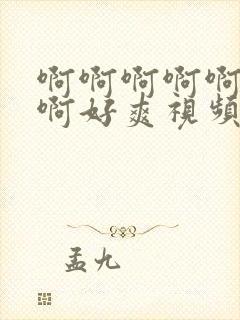 啊啊啊啊啊
啊好爽視頻
孟九